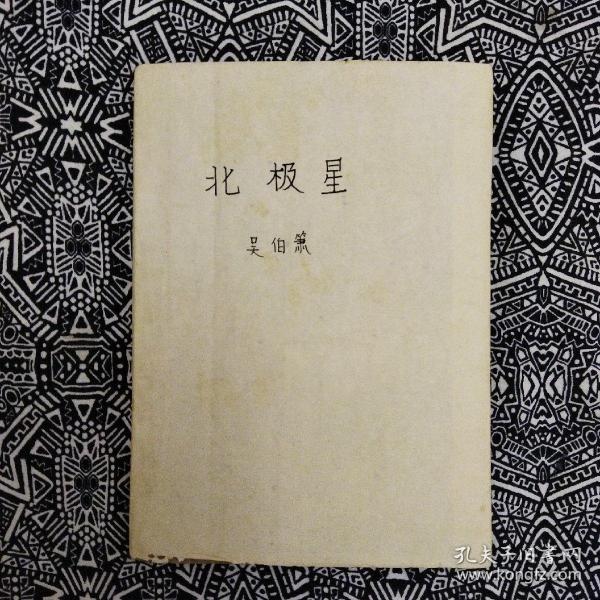 北极星
吴伯箫
孔夫子旧書网
www.kongfz.com